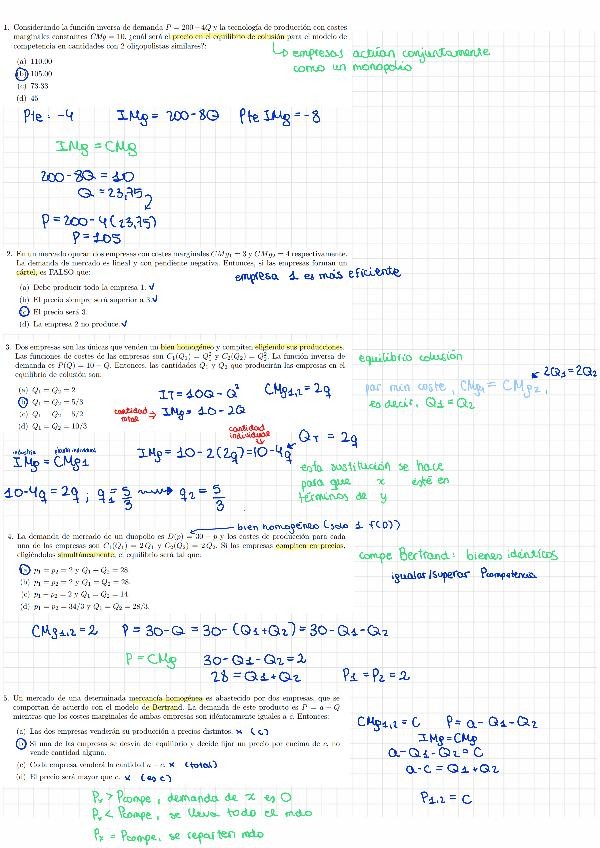 1. Considerando la función inversa de demanda P = 200 - 4Q y la tecnología de producción con costes
marginales constantes CMg = 10, ¿cuál será el precio en el equilibrio de colusión para el modelo de
competencia en cantidades con 2 oligopolistas similares?:
↳ empresas actúan conjuntamente
como un monopolio
(a) 110.00
(b) 105.00
(c) 73.33
(d) 45
Pte: -4 IMg = 200-8Q Pte IMg = -8
IMg = CMg
200-8Q = 10
Q = 23,75
P = 200-4(23,75)
P = 105
2. En un mercado operan dos empresas con costes marginales CMg1 = 3 y CMg2 = 4 respectivamente.
La demanda de mercado es lineal y con pendiente negativa. Entonces, si las empresas forman un
cártel, es FALSO que:
empresa 1 es más eficiente
(a) Debe producir todo la empresa 1. ✓
(b) El precio siempre será superior a 3. ✓
(c) El precio será 3.
(d) La empresa 2 no produce. ✓
3. Dos empresas son las únicas que venden un bien homogéneo y compiten eligiendo sus producciones.
Las funciones de costes de las empresas son C1(Q1) = Q1² y C2(Q2) = Q2². La función inversa de
demanda es P(Q) = 10 - Q. Entonces, las cantidades Q1 y Q2 que producirán las empresas en el
equilibrio de colusión son:
equilibrio colusión
(a) Q1 = Q2 = 2
(b) Q1 = Q2 = 5/3
(c) Q1 = Q2 = 5/2
(d) Q1 = Q2 = 10/3
IT = 10Q - Q² CMg1,2 = 2q
cantidad total → IMg = 10-2Q
2Q1 = 2Q2
por min coste, CMg1 = CMg2,
es decir, Q1 = Q2
cantidad individual
QT = 2q
industria planta individual
IMg = CMg1 IMg = 10-2(2q) = 10-4q
esta sustitución se hace
para que x esté en
términos de y
10-4q = 2q ; q1 = 5/3 → q2 = 5/3
bien homogéneo (solo 1 f(D))
4. La demanda de mercado de un duopolio es D(p) = 30 - p y los costes de producción para cada
una de las empresas son C1(Q1) = 2Q1 y C2(Q2) = 2Q2. Si las empresas compiten en precios,
eligiéndolos simultáneamente, el equilibrio será tal que:
compe Bertrand: bienes idénticos
igualar/superar Pcompetencia
(a) p1 = p2 = 2 y Q1 + Q2 = 28
(b) p1 = p2 = 2 y Q1 = Q2 = 28.
(c) p1 = p2 = 2 y Q1 = Q2 = 14
(d) p1 = p2 = 34/3 y Q1 = Q2 = 28/3.
CMg1,2 = 2 P = 30-Q = 30-(Q1+Q2) = 30-Q1-Q2
P = CMg 30-Q1-Q2 = 2
28 = Q1+Q2 P1 = P2 = 2
5. Un mercado de una determinada mercancía homogénea es abastecido por dos empresas, que se
comportan de acuerdo con el modelo de Bertrand. La demanda de este producto es P = a - Q
mientras que los costes marginales de ambas empresas son idénticamente iguales a c. Entonces:
(a) Las dos empresas venderán su producción a precios distintos. x (c)
(b) Si una de las empresas se desvía del equilibrio y decide fijar un precio por encima de c, no
vende cantidad alguna.
(c) Cada empresa venderá la cantidad a - c. x (total)
(d) El precio será mayor que c. x (es c)
CMg1,2 = C P = a-Q1-Q2
IMg = CMg
a-Q1-Q2 = C
a-C = Q1+Q2
P1,2 = C
Px > Pcompe, demanda de x es 0
Px < Pcompe, se lleva todo el mdo
Px = Pcompe, se reparten mdo